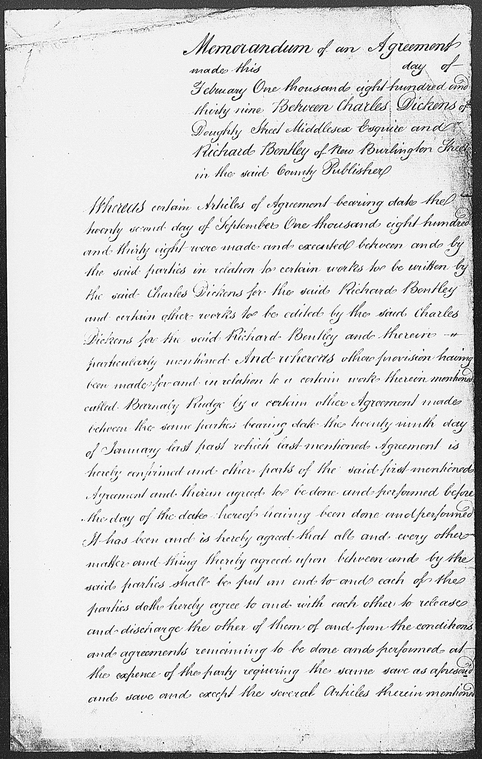 Memorandum of an Agreement
made this day of
February One thousand eight hundred and
thirty nine Between Charles Dickens of
Doughty Street Middlesex Esquire and
Richard Bentley of New Burlington Street
in the said County Publisher
Whereas certain Articles of Agreement bearing date the
twenty second day of September One thousand eight hundred
and thirty eight were made and executed between and by
the said parties in relation to certain works to be written by
the said Charles Dickens for the said Richard Bentley
and certain other works to be edited by the said Charles
Dickens for the said Richard Bentley and therein
particularly mentioned And whereas other provision having
been made for and in relation to a certain work therein mentioned
called Barnaby Rudge by a certain other Agreement made
between the same parties bearing date the twenty ninth day
of January last past which last mentioned Agreement is
hereby confirmed and other parts of the said first mentioned
Agreement and therein agreed to be done and performed before
the day of the date hereof having been done and performed
It has been and is hereby agreed that all and every other
matter and thing thereby agreed upon between and by the
said parties shall be put an end to and each of the
parties doth hereby agree to and with each other to release
and discharge the other of them of and from the conditions
and agreements remaining to be done and performed at
the expence of the party requiring the same save as aforesaid
and save and except the several Articles therein mentioned